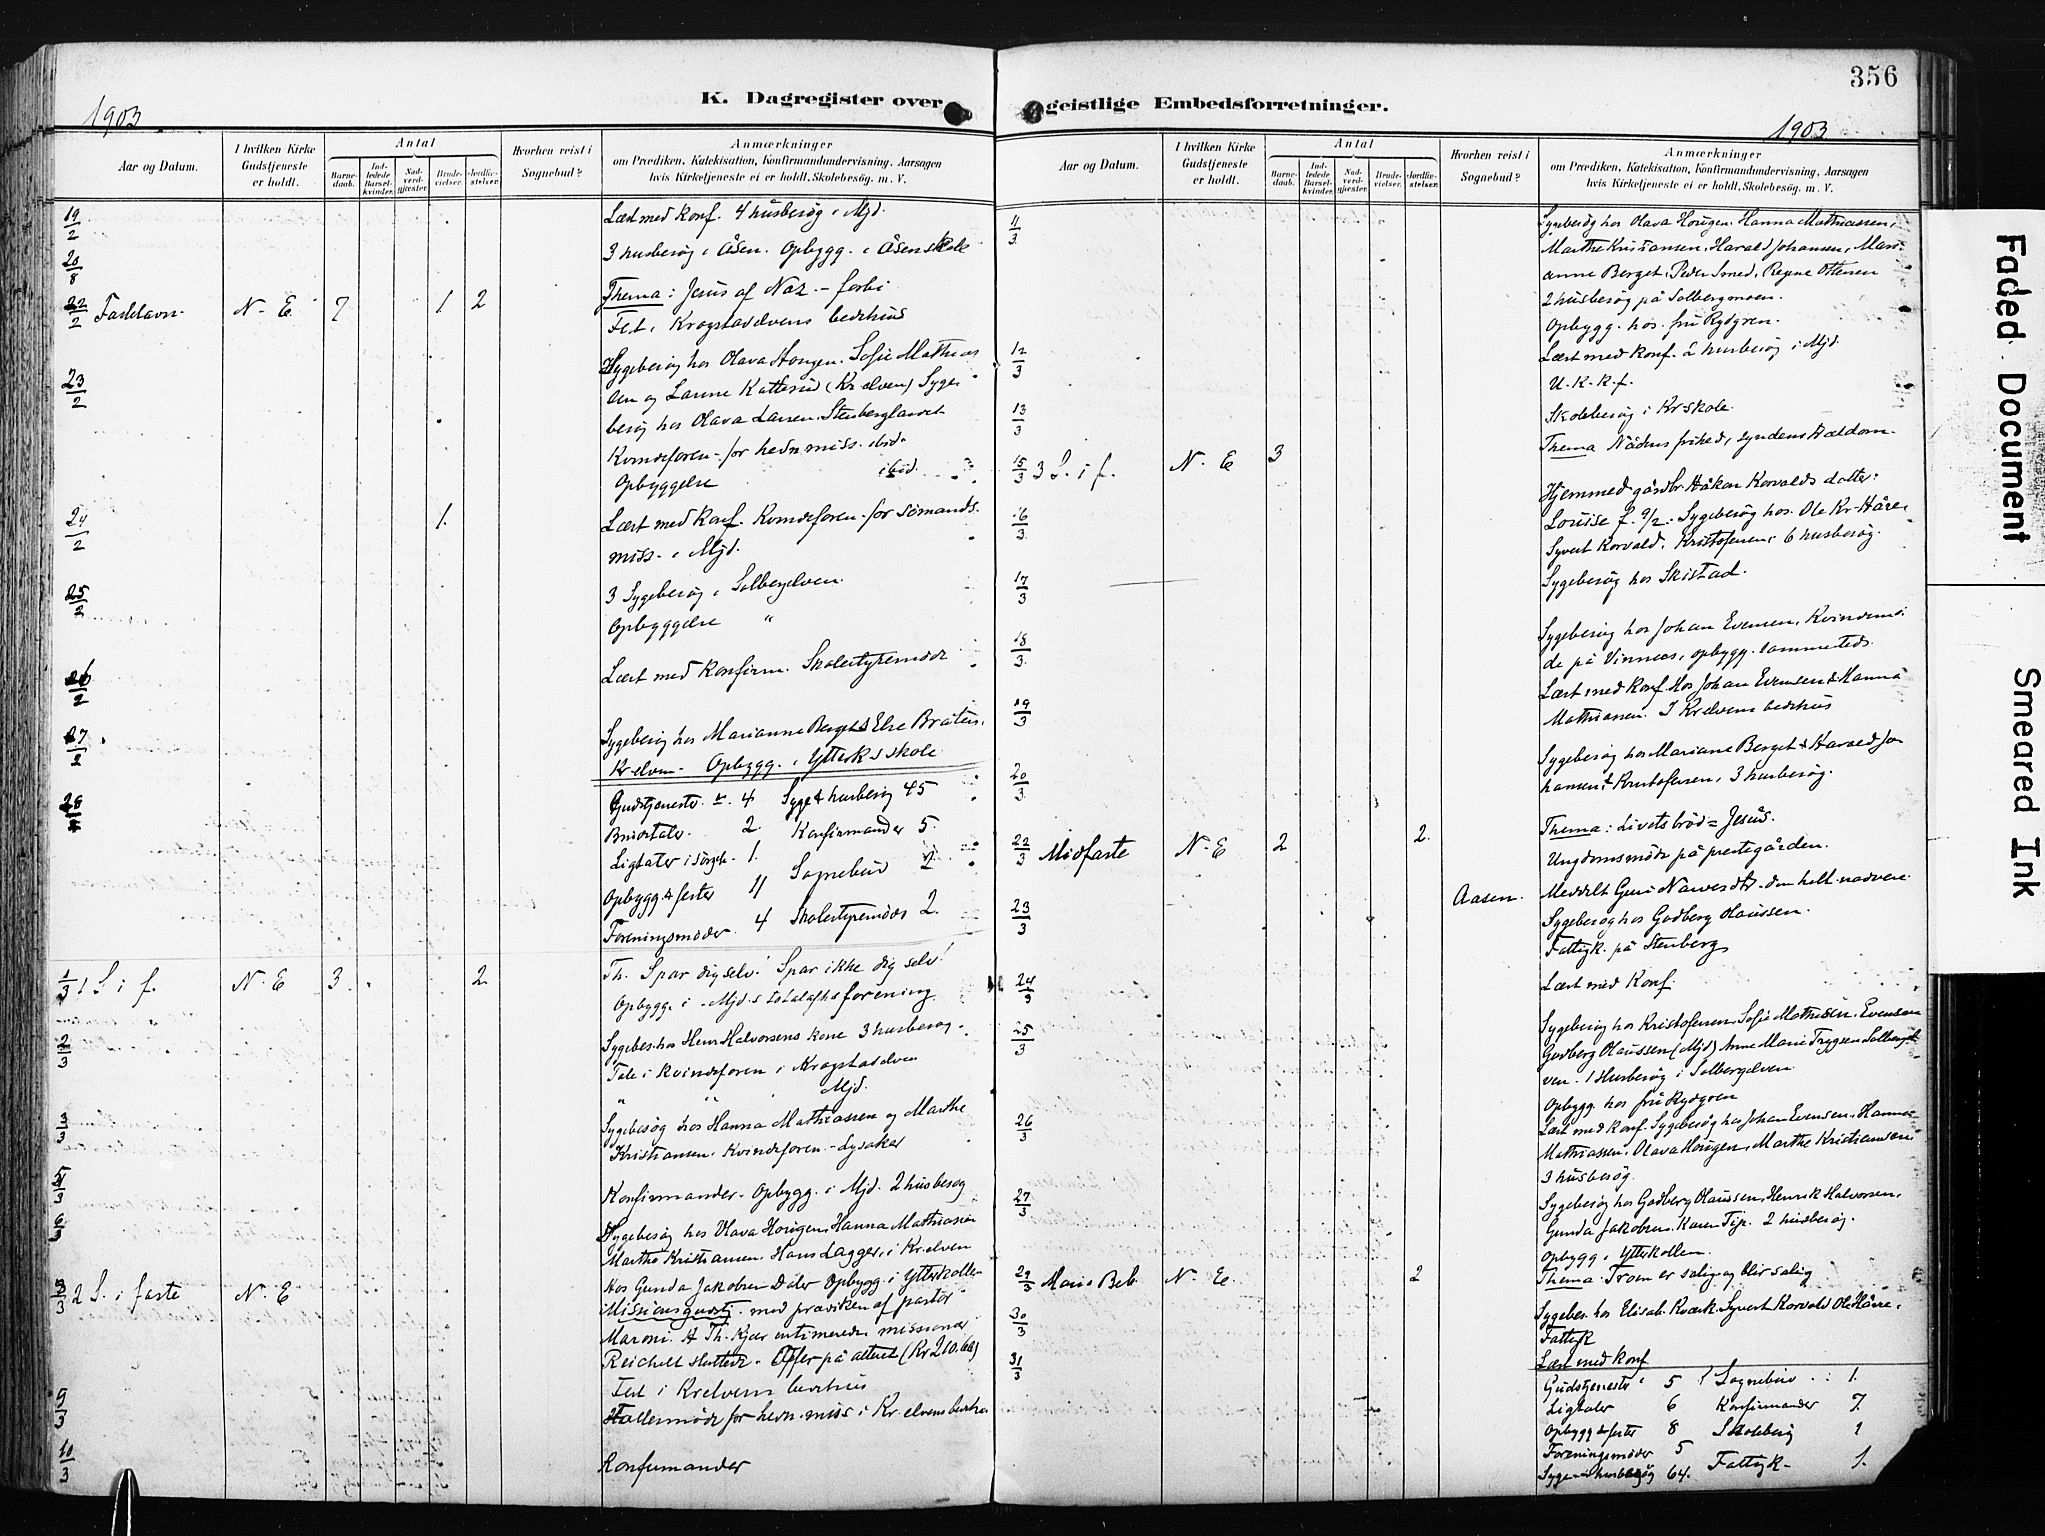 1903
K. Dagregister over
Aar og Datum.
I hvilken Kirke Gudstjeneste er holdt.
Antal
Barne-daab.
Ind-ledede Barsel-kvinder.
Nad-verd-gjæster.
Brude-vielser.
Jordfæ-stelser.
Hvorhen reist i Sognebud?
Anmærkninger
om Prædiken, Katekisation, Konfirmandundervisning, Aarsagen
hvis Kirketjeneste ei er holdt, Skolebesøg. m. V.
19/2 Læst med Konf. 4 husbesøg i Mjd.
20/8 3 husbesøg i Åsen. Opbygg. i Åsen skole
22/2 Fastelavn. N. E. 7 1 2 Thema: Jesus af Naz. - forbi
Fest i Krogstadelvens bedehus
23/2 Sygebesøg hos Olava Hougen. Sofie Mathias
sen og (Kr elven) Syge-
besøg hos Olava Larsen. Stenberglandet
Kvindeforen. for hedn miss. ibid.
Opbyggelse ibid.
24/2 1. Læst med Konf. Kvindeforen. for sømands-
miss. i Mjd.
25/2 3 Sygebesøg i Solbergelven.
Opbyggelse "
26/2 Læst med Konfirm. Skolestyremøde
27/2 Sygebesøg hos Marianne Berget & Else Bråten.
Kr. elven. Opbygg. i Ytterk s skole
28 Gudstjeneste 4 Syge & husbesøg 45
2 Konfirmander 5.
Ligtaler i Sørgeh. 1. Sognebud 2
Opbygg & fester 11
Foreningsmøder 4 Skolestyremøde 2.
1/3 1 S. i f. N. E 3. 2 Th. Spar dig selv! Spar ikke dig selv!
Opbygg. i Mjd.s totalafhsforening
2/3 Sygebes. hos Henr Halvorsens kone 3 husbesøg.
Tale i Kvindeforen i Krogstadelven
" " Mjd.
3/3 Sygebesøg hos Hanna Mathiassen og Marthe
Kristiansen. Kvindeforen - Lysaker
5/3 Konfirmander. Opbygg. i Mjd. 2 husbesøg
6/3 Sygebesøg hos Olava Hougen, Hanna Mathiassen
Marthe Kristiansen. Hans Lagger, i Kr. elven
Hos Gunda Jakobsen Daler Opbygg. i Ytterkollen
8/3 2 S. i faste N. E Missionsgudstj. med prædiken af pastor
Maroni. & Th. Kjær missionær
Reichelt Offer på alteret (Kr 210.60)
Fest i Kr elvens bedehus
9/3 Fællesmøde for hedn. miss i Kr. elvens bedehus
10/3 Konfirmander
356
geistlige Embedsforretninger.
1903
Aar og Datum.
I hvilken Kirke Gudstjeneste er holdt.
Antal
Barne-daab.
Ind-ledede Barsel-kvinder.
Nad-verd-gjæster.
Brude-vielser.
Jordfæ-stelser.
Hvorhen reist i Sognebud?
Anmærkninger
om Prædiken, Katekisation, Konfirmandundervisning, Aarsagen
hvis Kirketjeneste ei er holdt, Skolebesøg. m. V.
11/3 Sygebesøg hos Olava Hougen. Hanna Mathiassen,
Marthe Kristiansen, Harald Johansen, Mari-
anne Berget, Peder Smed, Regine Ottesen
2 husbesøg på Solbergmoen.
Opbygg. hos fru Rydgren.
12/3 Læst med Konf. 2 husbesøg i Mjd.
U. K. K. f.
13/3 Skolebesøg i Kr skole.
15/3 3 S. i f. N. E 3 Thema Nådens frihed, syndens trældom.
Hjemmed. gårdbr. Håkon Korvalds datter:
Louise f. 9/2. Sygebesøg hos Ole Kr. Håre,
16/3 Syvert Korvald, Kristofersen, 6 husbesøg.
17/3 Sygebesøg hos Skistad.
18/3 Sygebesøg hos Johan Evensen, Kvindemø-
de på Vinnes, opbygg. sammesteds.
19/3 Læst med Konf. Hos Johan Evensen & Hanna
Mathiassen. I Kr elvens bedehus
20/3 Sygebesøg hos Mariane Berget & Harald Jo-
hansen, & Kristofersen, 3 husbesøg.
22/3 Midfaste N. E 2 2. Thema: Livets brød = Jesus.
Ungdomsmøde på prestegården.
23/3 Aasen. Meddelt Guri den hell. nadvere
Sygebesøg hos Godberg Olaussen.
Fattigk. på Stenberg
24/3 Læst med Konf.
25/3 Sygebesøg hos Kristofersen, Sofie Mathisen, Evensen
Godberg Olaussen (Mjd) Anne Marie Trygsen Solbergel-
ven. 1 Husbesøg i Solbergelven
Opbygg. hos fru Rydgren
26/3 Læst med Konf. Sygebesøg hos Johan Evensen, Hanna
Mathiassen, Olava Hougen, Marthe Kristiansen
3 husbesøg.
27/3 Sygebesøg hos Godberg Olaussen, Henrik Halvorsen,
Gunda Jakobsen, Karen 2 husbesøg.
Opbygg. i Ytterkollen.
29/3 Maria Beb. N. E. 2 Thema. Troen er salig og blir salig
30/3 Sygebes. hos Elisab. Kværk. Syvert Korvald Ole Håre.
Fattigk
31/3 Læst med Konf
Gudstjenester 5 Sognebud 1.
Ligtaler 6 Konfirmander 7.
Opbygg & fester 8 Skolebesøg 1
Foreningsmøder 5
Syge- husbesøg 64. Fattigk. 1.
Faded Document
Smeared Ink